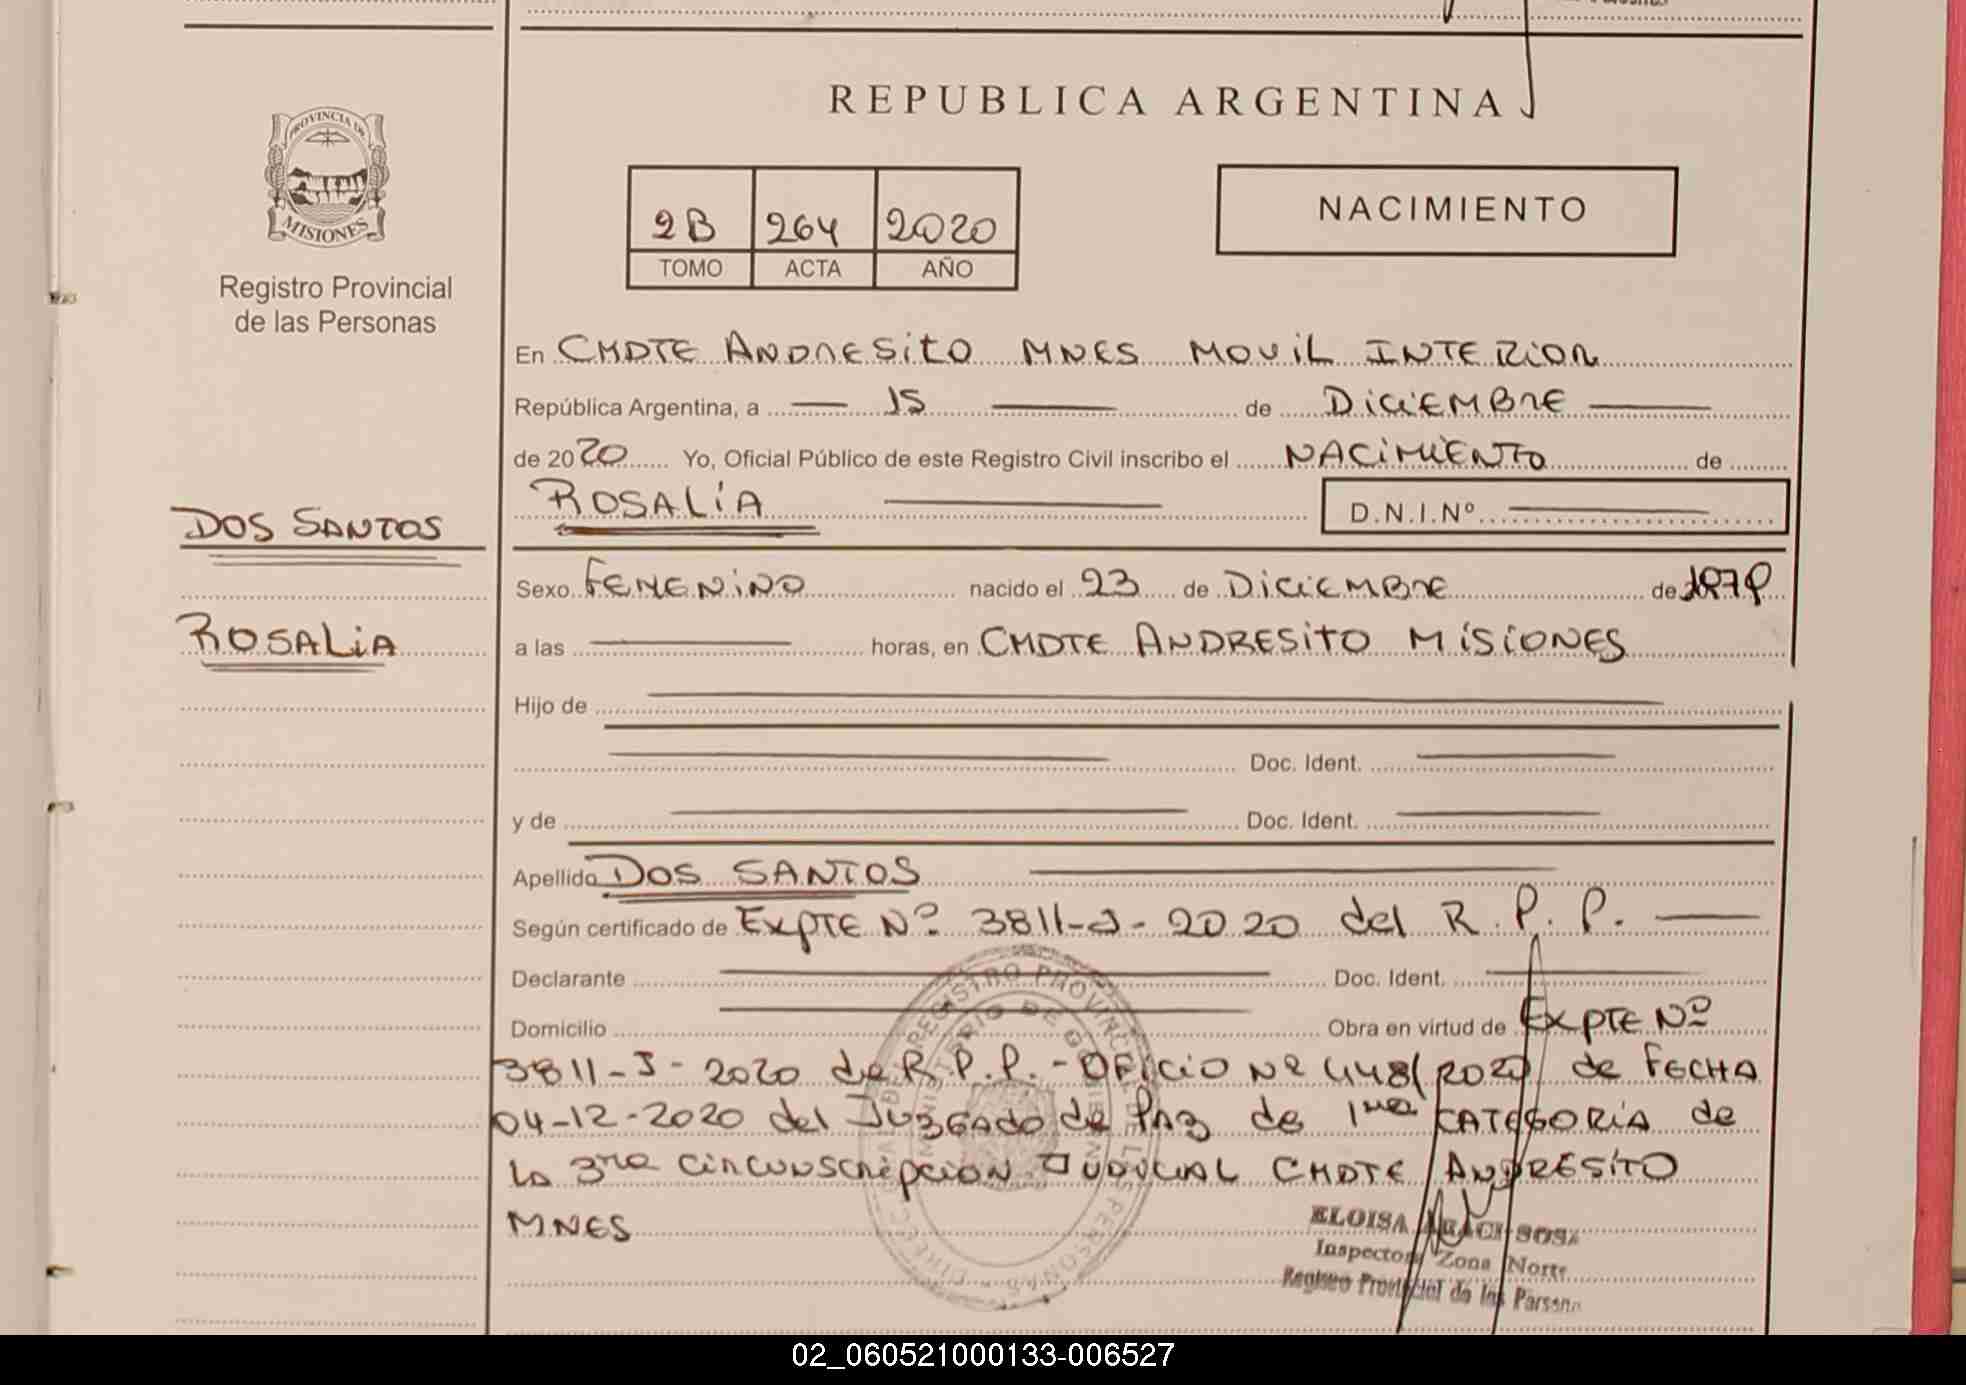 REPUBLICA ARGENTINA
PROVINCIA DE
MISIONES
Registro Provincial
de las Personas
2B 264 2020
TOMO ACTA AÑO
NACIMIENTO
En CMDTE ANDRESITO MNES MOVIL INTERIOR
República Argentina, a 15 de DICIEMBRE
de 2020 Yo, Oficial Público de este Registro Civil inscribo el NACIMIENTO de
ROSALIA
D.N.I.Nº
DOS SANTOS
Sexo FEMENINO nacido el 23 de DICIEMBRE de
ROSALIA
a las horas, en CMDTE ANDRESITO MISIONES
Hijo de
Doc. Ident.
y de Doc. Ident.
Apellido DOS SANTOS
Según certificado de EXPTE Nº 3811-J-2020 del R.P.P.
Declarante Doc. Ident.
Domicilio Obra en virtud de EXPTE Nº
3811-J-2020 de R.P.P.-OFICIO Nº 448/2020 de FECHA
04-12-2020 del JUZGADO de PAZ de 1ra CATEGORIA de
la 3ra CIRCUNSCRIPCION JUDICIAL CMDTE ANDRESITO
MNES
ELOISA ARACI SOSA
Inspectora Zona Norte
Registro Provincial de las Person
02_060521000133-006527